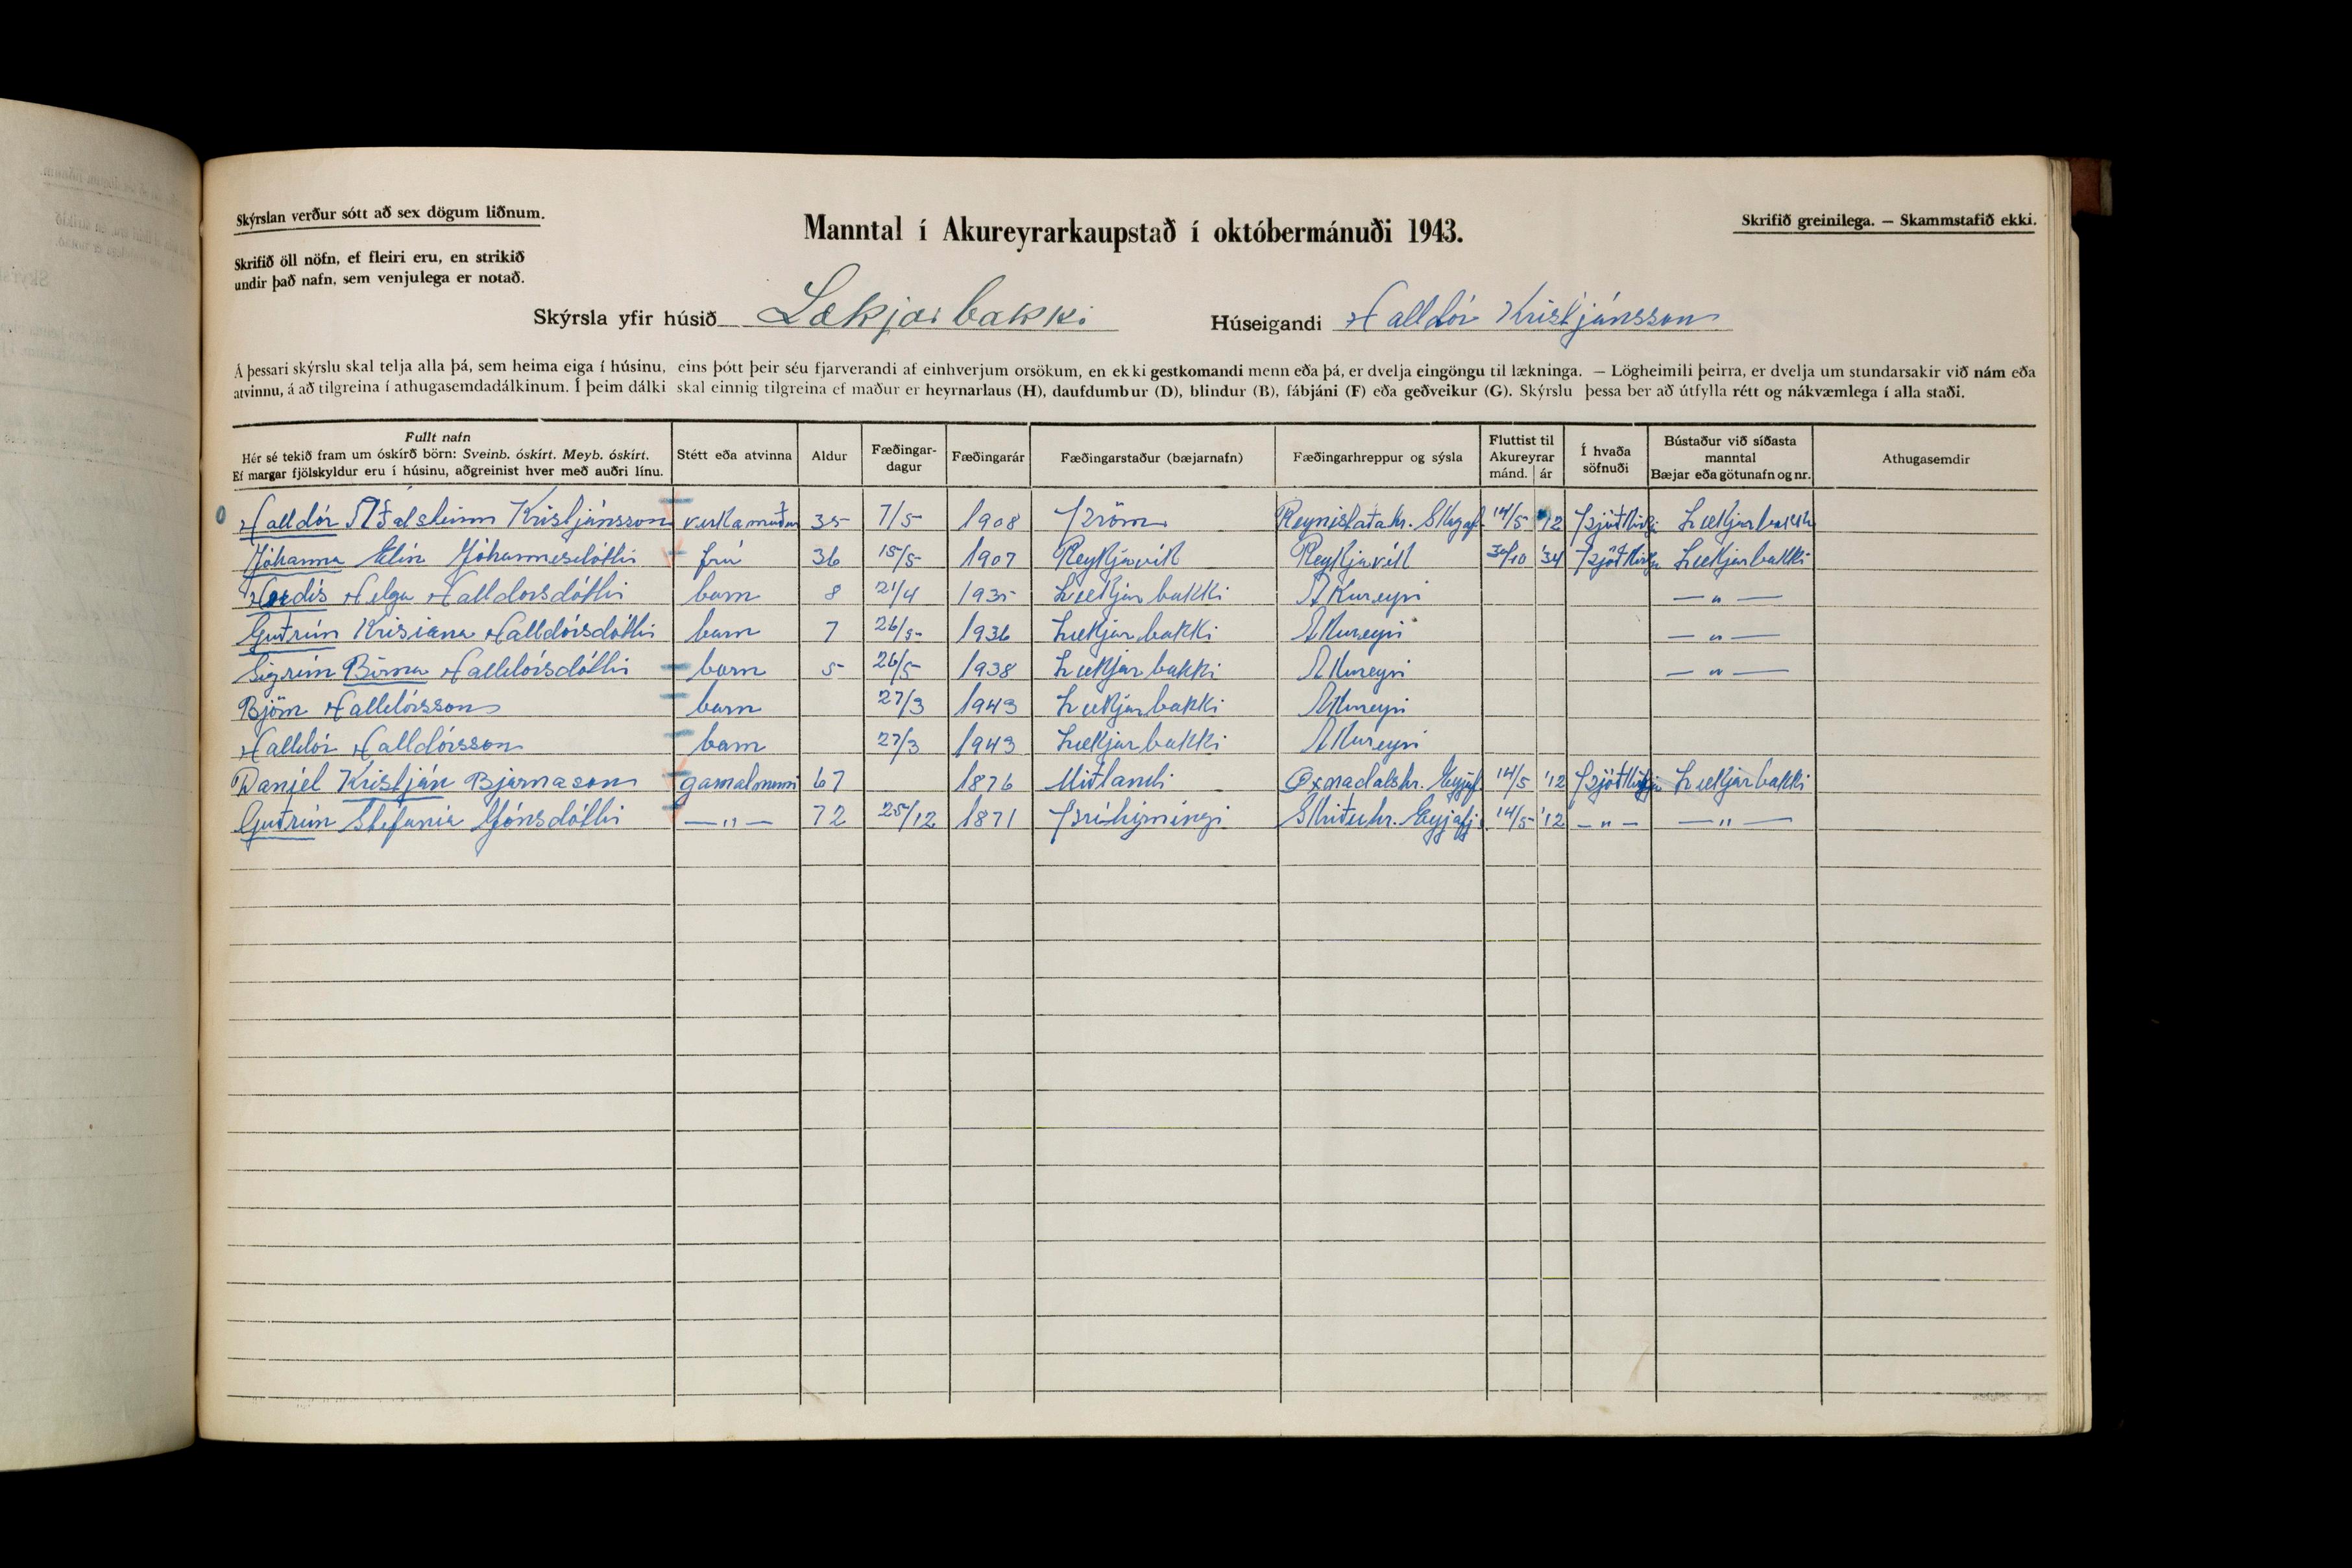 Skýrslan verður sótt að sex dögum liðnum.
Manntal í Akureyrarkaupstað í októbermánuði 1943.
Skrifið greinilega. — Skammstafið ekki.
Skrifið öll nöfn, ef fleiri eru, en strikið
undir það nafn, sem venjulega er notað.
Skýrsla yfir húsið Lækjarbakki Húseigandi Halldór Kristjánsson
Á þessari skýrslu skal telja alla þá, sem heima eiga í húsinu, eins þótt þeir séu fjarverandi af einhverjum orsökum, en ekki gestkomandi menn eða þá, er dvelja eingöngu til lækninga. — Lögheimili þeirra, er dvelja um stundarsakir við nám eða
atvinnu, á að tilgreina í athugasemdadálkinum. Í þeim dálki skal einnig tilgreina ef maður er heyrnarlaus (H), daufdumbur (D), blindur (B), fábjáni (F) eða geðveikur (G). Skýrslu þessa ber að útfylla rétt og nákvæmlega í alla staði.
Fullt nafn
Hér sé tekið fram um óskírð börn: Sveinb. óskírt. Meyb. óskírt.
Ef margar fjölskyldur eru í húsinu, aðgreinist hver með auðri línu.
Stétt eða atvinna
Aldur
Fæðingar-
dagur
Fæðingarár
Fæðingarstaður (bæjarnafn)
Fæðingarhreppur og sýsla
Fluttist til
Akureyrar
mánd. ár
Í hvaða
söfnuði
Bústaður við síðasta
manntal
Bæjar eða götunafn og nr.
Athugasemdir
Halldór Aðalsteinn Kristjánsson verkamaður 35 7/5 1908 Þröm Reynistaðahr. Skagaf. 14/5 '12 Þjóðkirkju Lækjarbakki
Jóhanna Elín Jóhannesdóttir frú 36 15/5 1907 Reykjavík Reykjavík 30/10 '34 Þjóðkirkju Lækjarbakki
Herdís Helga Halldorsdóttir barn 8 21/4 1935 Lækjarbakki Akureyri — " —
Guðrún Krisiana Halldórsdóttir barn 7 26/5 1936 Lækjarbakki Akureyri — " —
Sigrún Birna Halldórsdóttir barn 5 26/5 1938 Lækjarbakki Akureyri — " —
Björn Halldórsson barn 27/3 1943 Lækjarbakki Akureyri
Halldór Halldórsson barn 27/3 1943 Lækjarbakki Akureyri
Daníel Kristján Bjarnason gamalmenni 67 1876 Miðlandi Öxnadalshr. Eyjaf. 14/5 '12 Þjóðkirkju Lækjarbakki
Guðrún Stefanía Jónsdóttir — " — 72 25/12 1871 Þríhyrningi Skriðuhr. Eyjafj. 14/5 '12 — " — — " —